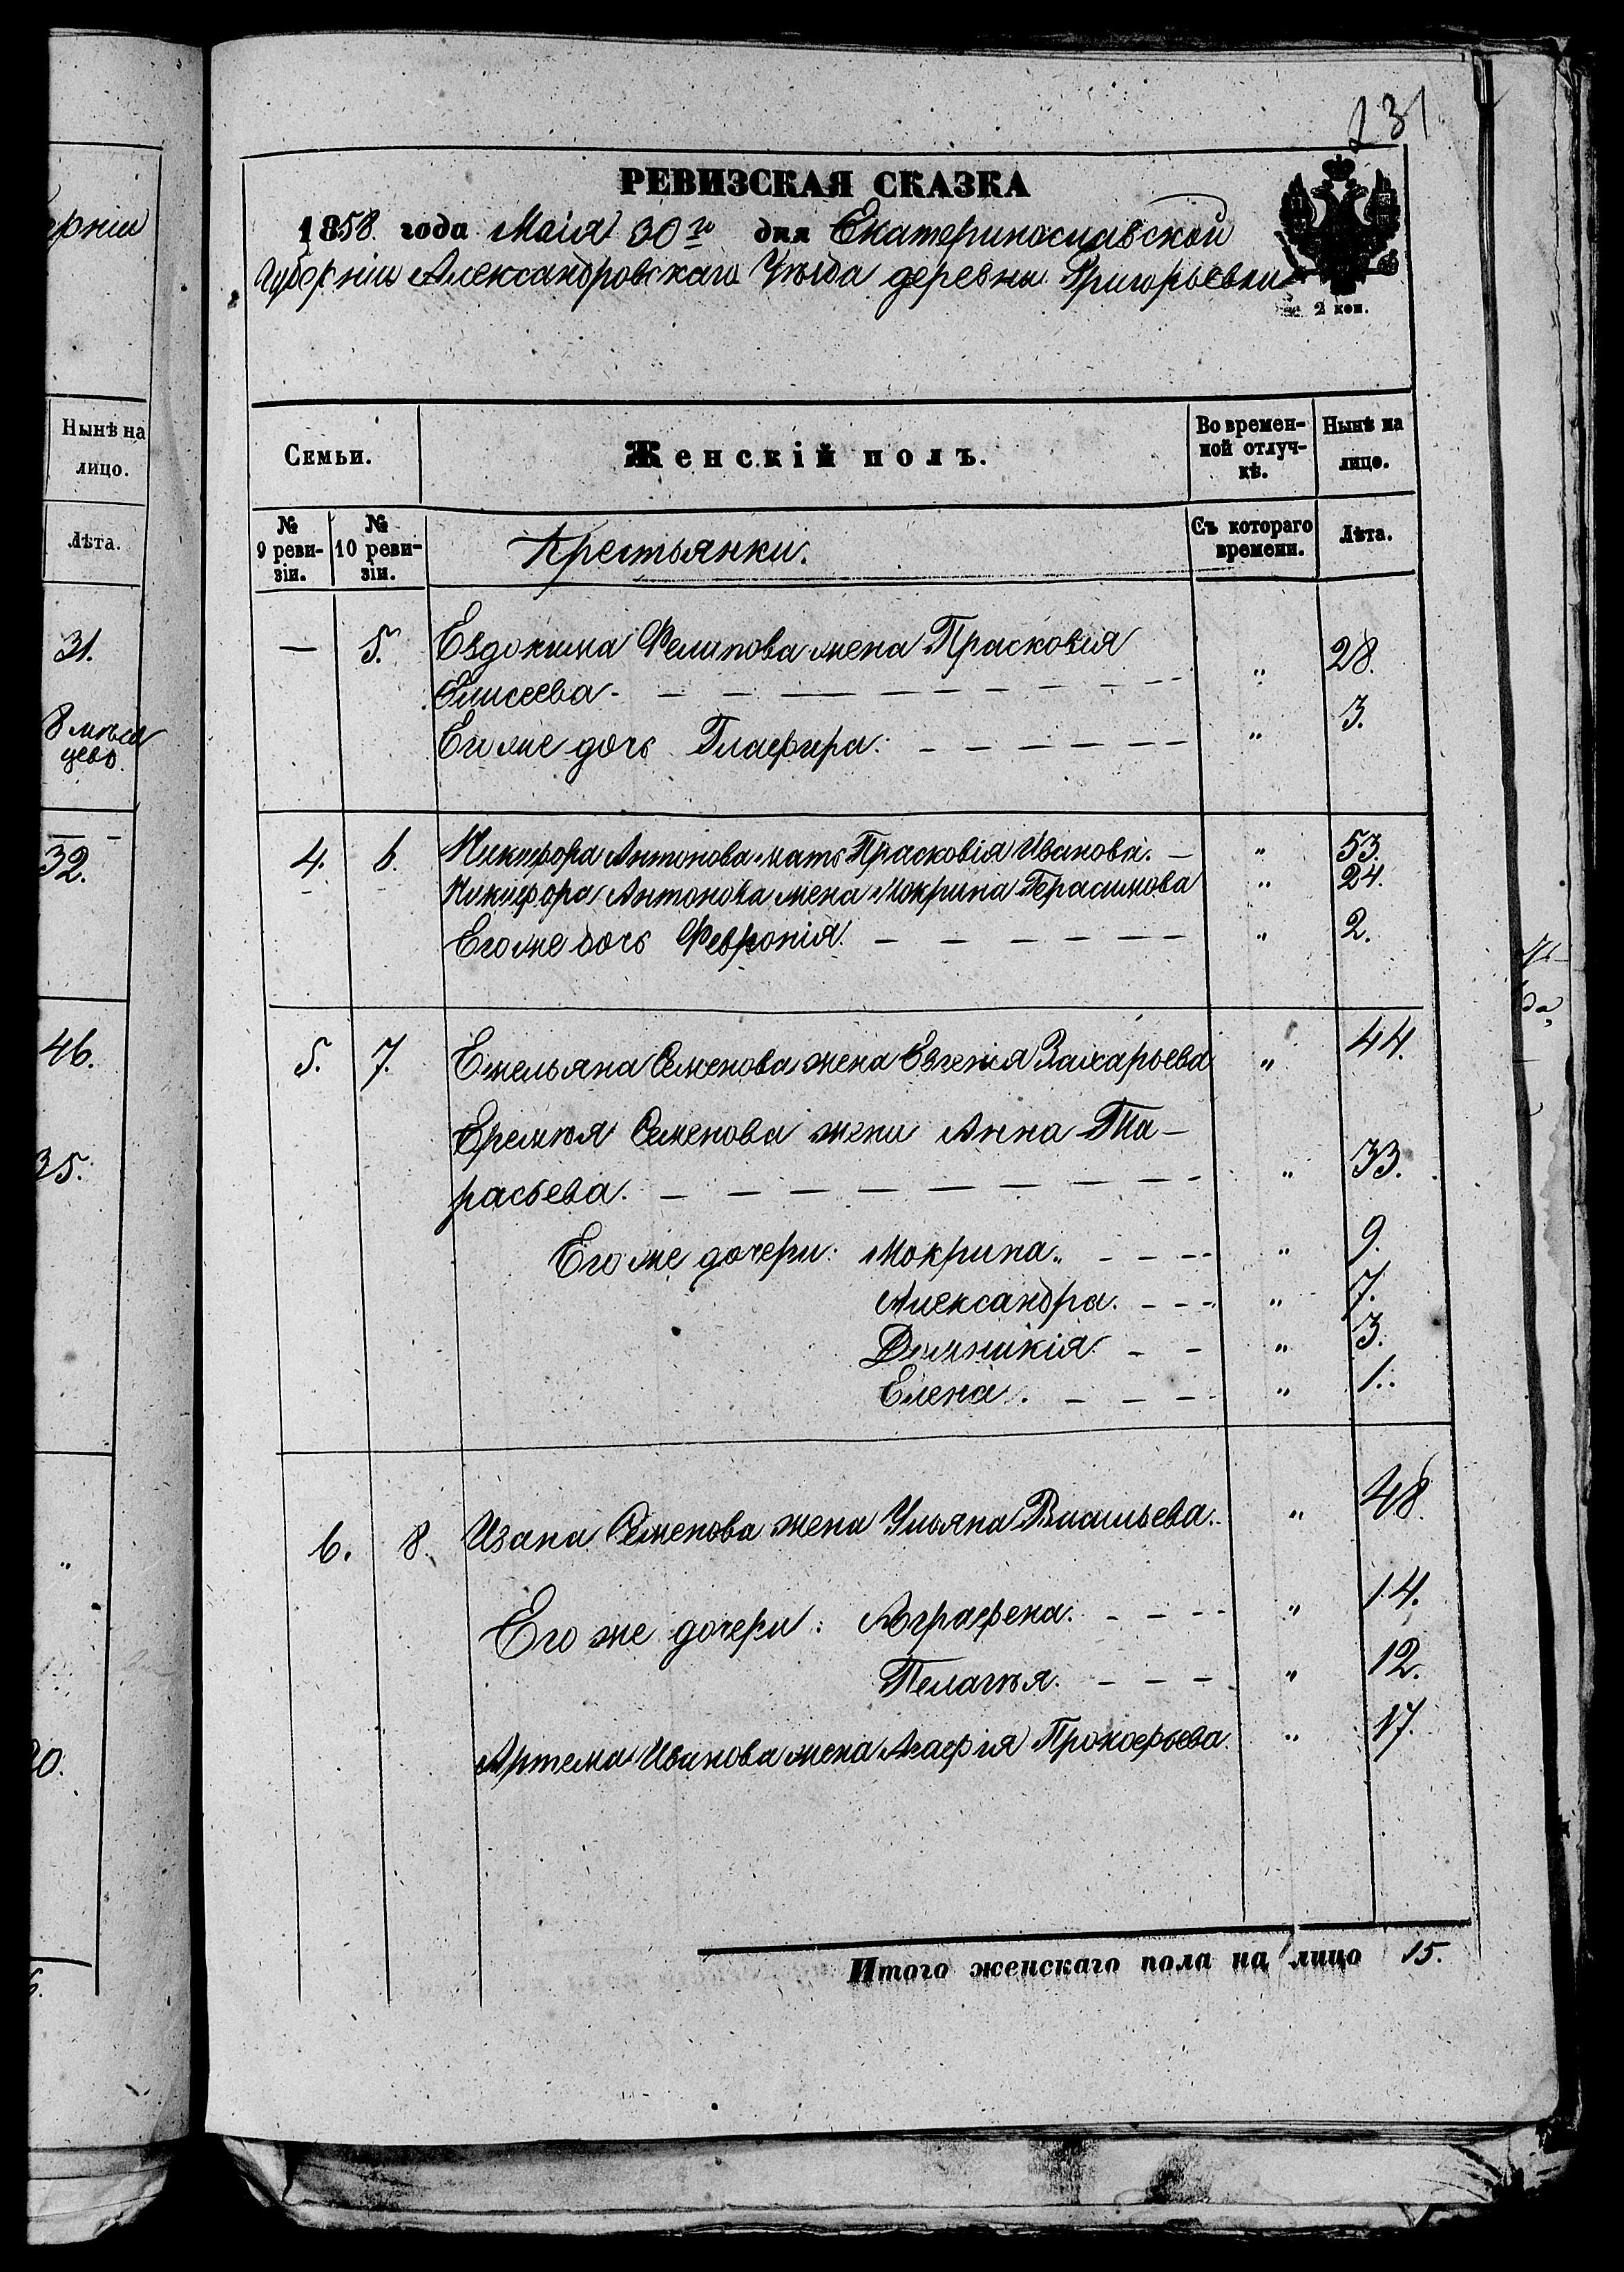 ерніи
Нынѣ на
лицо.
Лѣта.
31.
8 мѣся
цевъ.
32.
46.
35.
"
231
РЕВИЗСКАЯ СКАЗКА
1858 года Маія 30го дня Екатеринославской
Губерніи Александровскаго Уѣзда деревни Григорьевки
2 коп.
Семьи. Женскій полъ. Во времен- Нынѣ на
ной отлуч- лицо.
кѣ.
№ № Крестьянки. Съ котораго Лѣта.
9 реви- 10 реви- времени.
зіи. зіи.
— 5. Евдокима Филипова жена Прасковія
Елисеева. " 28.
Его же дочь Глафира. " 3.
4. 6. Никифора Антонова мать Прасковія Иванова. " 53.
Никифора Антонова жена Мокрина Герасимова " 24.
Его же дочь Февронія. " 2.
5. 7. Емельяна Семенова жена Евгенія Захарьева " 44.
Еремѣя Семенова жена Анна Та-
расьева. " 33.
Его же дочери: Мокрина. " 9.
Александра. " 7.
Домникія " 3.
Елена. " 1.
6. 8. Ивана Семенова жена Ульяна Васильева. " 48.
Его же дочери: Аграфена. " 14.
Пелагѣя. " 12.
Артема Иванова жена Агафія Прокофьева. " 17.
Итого женскаго пола на лицо 15.